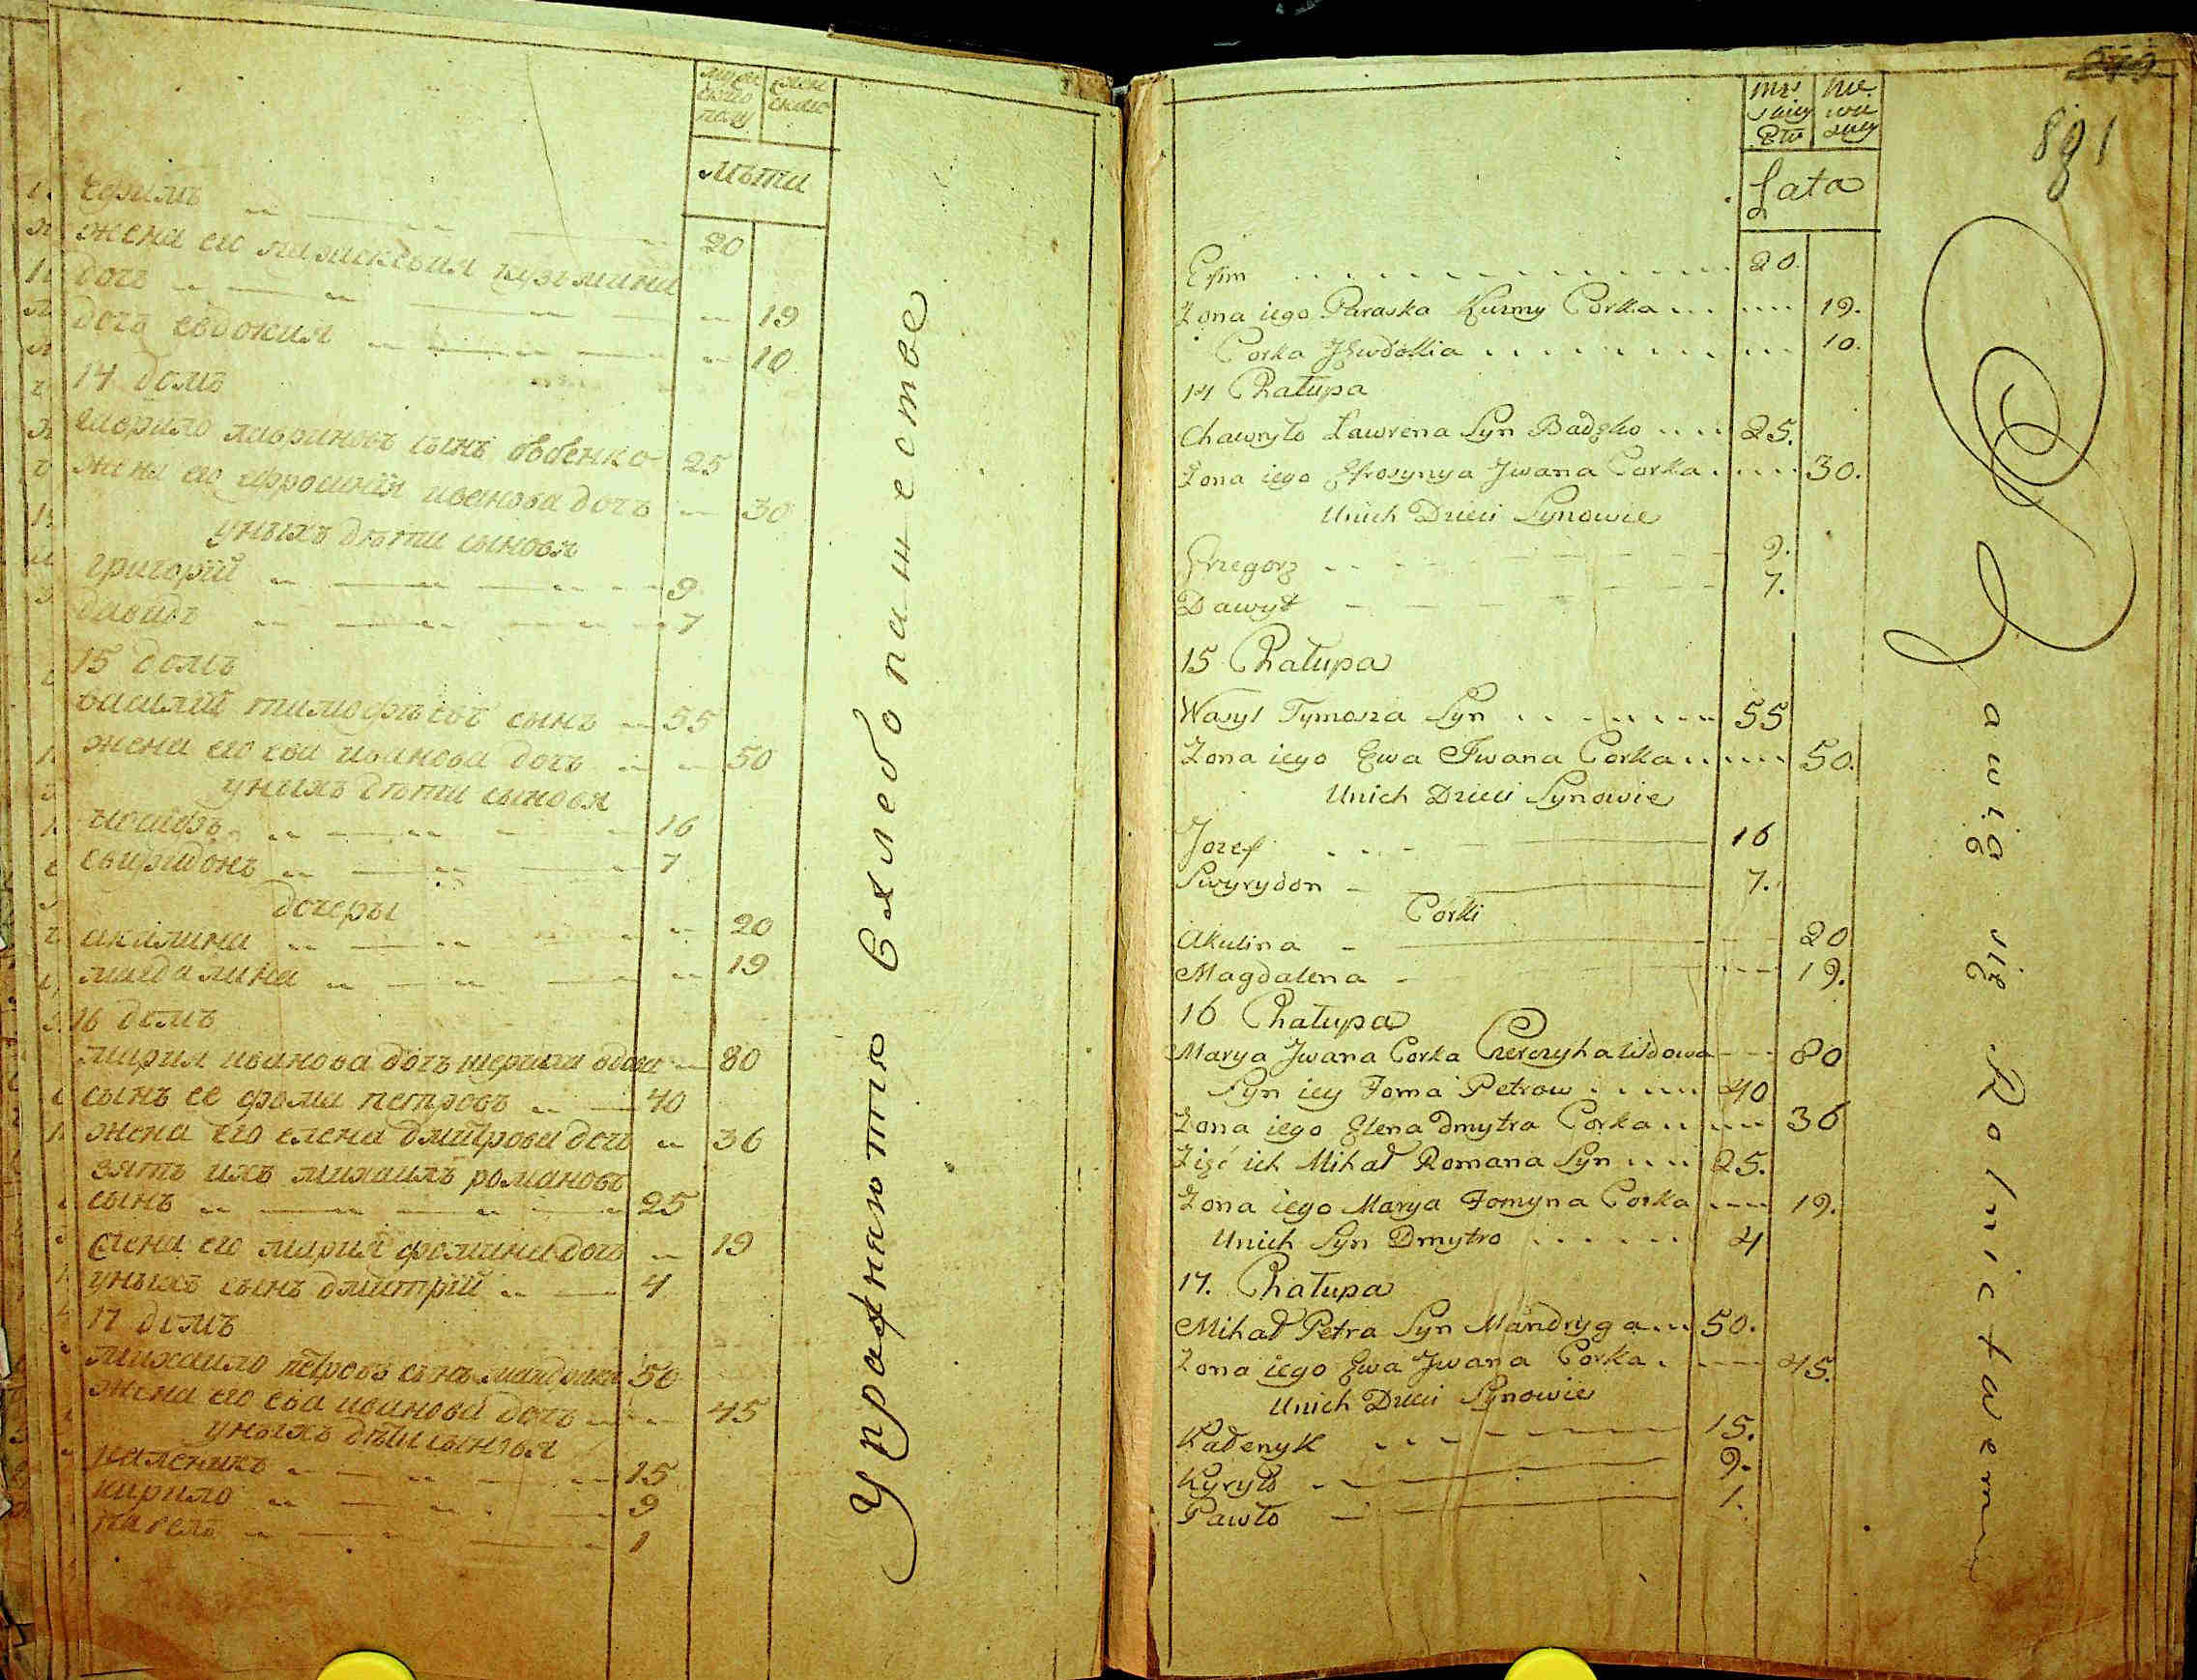 мужеска полу
женска
лѣта
ефимъ 20
жена его параскевия кузмина
дочь 19
дочь евдокия 10
14 домъ
гаврило лавриновъ сынъ 25
жена его ефросиния иванова дочь 30
унихъ дѣти сыновя
григорій 9
давидъ 7
15 домъ
василий тимофѣевъ сынъ 55
жена его ева иванова дочь 50
унихъ дѣти сыновя
иосифъ 16
свиридонъ 7
дочеры
акилина 20
магдалина 19
16 домъ
мария иванова дочь вдова 80
сынъ ее фома петровъ 40
жена его елена дмитрова дочь 36
зять ихъ михаилъ романовъ
сынъ 25
жена его мария фомина дочь 19
унихъ сынъ дмитрій 4
17 домъ
михаило петровъ сынъ 50
жена его ева иванова дочь 45
унихъ дѣти сыновя
каленикъ 15
кирило 9
павелъ 1
Упражняются вхлебопашестве
881
Męs kiey Płci
Nie wie
Lata
Efim 20.
Zona iego Paraska Kuzmy Corka 19.
Corka Jewdokia 10.
14 Chałupa
Chawryło Ławrena Syn Badzko 25.
Zona iego Efrosynya Jwana Corka 30.
Unich Dzieci Synowie
Grzegorz 9.
Dawyd 7.
15 Chałupa
Wasyl Tymosza Syn 55
Zona iego Ewa Iwana Corka 50.
Unich Dzieci Synowie
Jozef 16
Swyrydon 7.
Córki
Akulina 20
Magdalena 19.
16 Chałupa
Marya Jwana Corka Czerczyha Wdowa 80
Syn iey Foma Petrow 40
Zona iego Elena Dmytra Corka 36
Zięć ich Mihał Romana Syn 25.
Zona iego Marya Fomyna Corka 19.
Unich Syn Dmytro 4
17. Chałupa
Mihał Petra Syn Mandryga 50.
Zona iego Ewa Jwana Corka 45.
Unich Dzieci Synowie
Kałenyk 15.
Kyryło 9.
Pawło 1.
Bawią się Rolnictwem